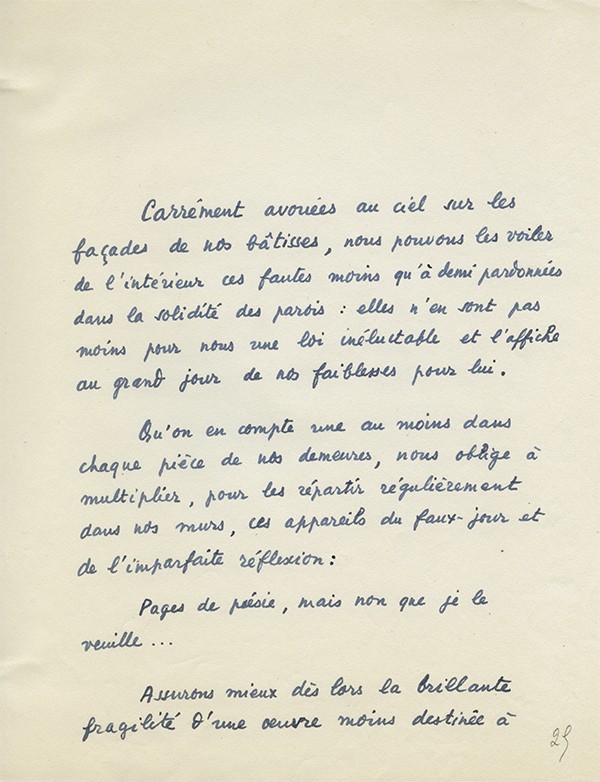 Carrément avouées au ciel sur les
façades de nos bâtisses, nous pouvons les voiler
de l'intérieur ces fautes moins qu'à demi pardonnées
dans la solidité des parois : elles n'en sont pas
moins pour nous une loi inéluctable et l'affiche
au grand jour de nos faiblesses pour lui.
Qu'on en compte une au moins dans
chaque pièce de nos demeures, nous oblige à
multiplier, pour les répartir régulièrement
dans nos murs, ces appareils du faux-jour et
de l'imparfaite réflexion :
Pages de poésie, mais non que je le
veuille ...
Assurons mieux dès lors la brillante
fragilité d'une œuvre moins destinée à
25